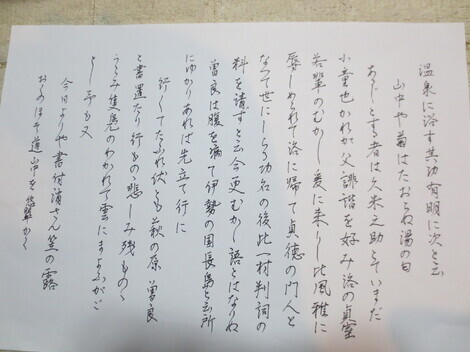 温泉に浴す其功有明に次と云
山中や菊はたおらぬ湯の匂
あるじとする者は久米之助とていまだ
小童也かれが父誹諧を好み洛の貞室
若輩のむかし爰に来りし比風雅に
辱しめられて洛に帰て貞徳の門人と
なつて世にしらる功名の後此一村判詞の
料を請ずと云今更むかし語とはなりぬ
曽良は腹を病て伊勢の国長島と云所
にゆかりあれば先立て行に
行くてたふれ伏とも萩の原 曽良
と書置たり行もの悲しみ残ものゝ
うらみ隻鳧のわかれて雲にまよふがご
とし予も又
今日よりや書付消さん笠の露
おくのほそ道山中を かく